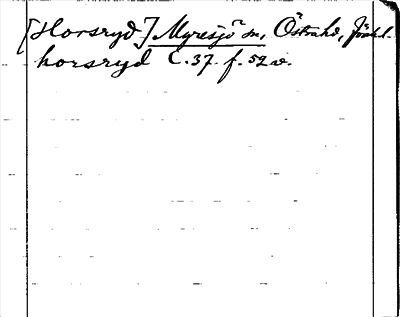 [Horsryd] Myresjö sn, Östra hd, Jönk l.
horsryd C. 37 f. 52 v.